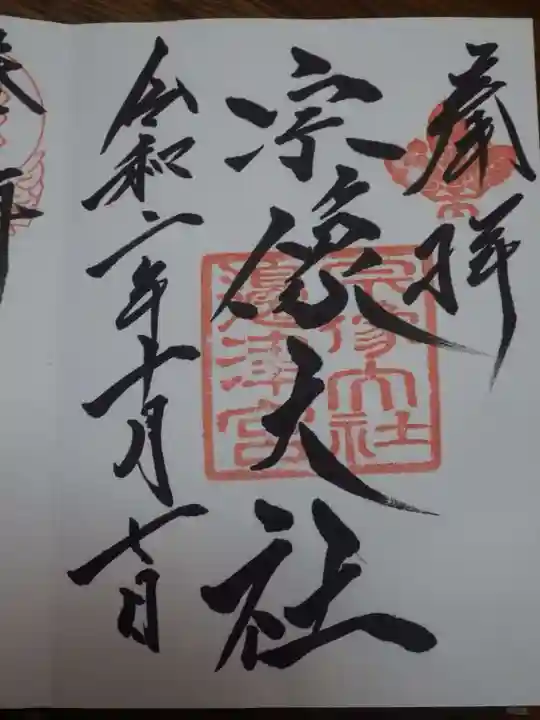 奉拝
宗像大社
宗像大社
邊津宮
令和二年十月七日
奉
拝